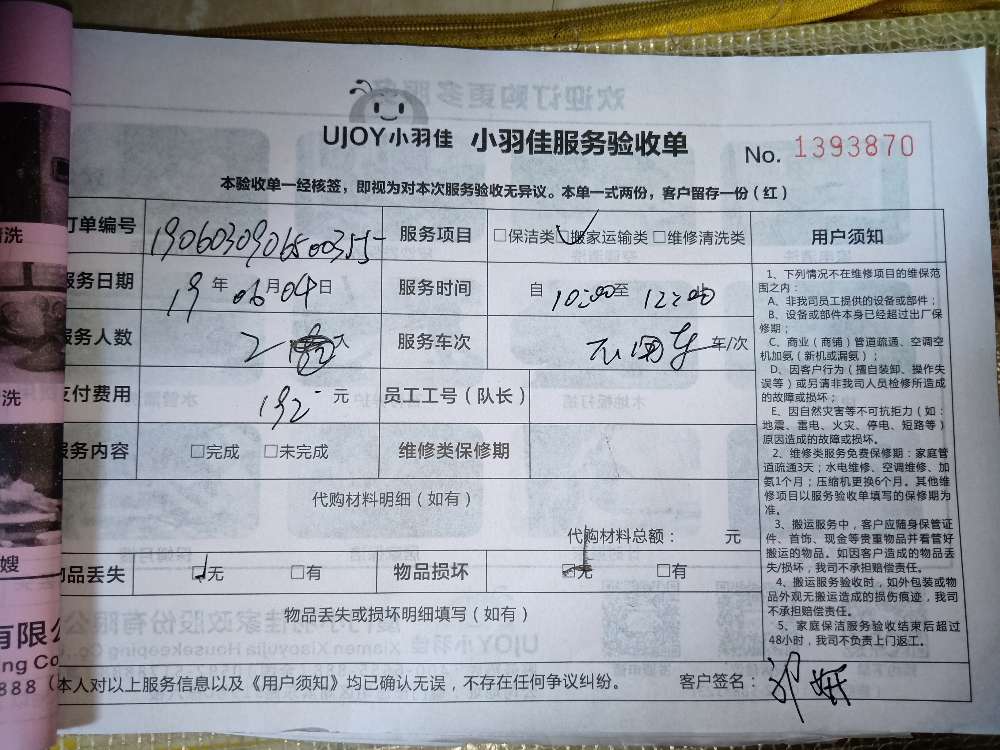 UJOY小羽佳 小羽佳服务验收单 No. 1393870
本验收单一经核签，即视为对本次服务验收无异议。本单一式两份，客户留存一份（红）
订单编号 服务项目 □保洁类 □搬家运输类 □维修清洗类 用户须知
服务日期 19年06月04日 服务时间 自10:00至12:00
服务人数 2 人 服务车次 车/次
支付费用 192 元 员工工号（队长）
服务内容 □完成 □未完成 维修类保修期
代购材料明细（如有）
代购材料总额： 元
物品丢失 □无 □有 物品损坏 □无 □有
物品丢失或损坏明细填写（如有）
本人对以上服务信息以及《用户须知》均已确认无误，不存在任何争议纠纷。 客户签名：
1、下列情况不在维修项目的维保范
围之内：
A、非我司员工提供的设备或部件；
B、设备或部件本身已经超过出厂保
修期；
C、商业（商铺）管道疏通、空调空
机加氨（新机或漏氨）；
D、因客户行为（擅自装卸、操作失
误等）或另请非我司人员检修所造成
的故障或损坏；
E、因自然灾害等不可抗拒力（如：
地震、雷电、火灾、停电、短路等）
原因造成的故障或损坏。
2、维修类服务免费保修期：家庭管
道疏通3天；水电维修、空调维修、加
氨1个月；压缩机更换6个月。其他维
修项目以服务验收单填写的保修期为
准。
3、搬运服务中，客户应随身保管证
件、首饰、现金等贵重物品并看管好
搬运的物品。如因客户造成的物品丢
失/损坏，我司不承担赔偿责任。
4、搬运服务验收时，如外包装或物
品外观无搬运造成的损伤痕迹，我司
不承担赔偿责任。
5、家庭保洁服务验收结束后超过
48小时，我司不负责上门返工。
清洗
洗
嫂
有限公
ng Co
888（